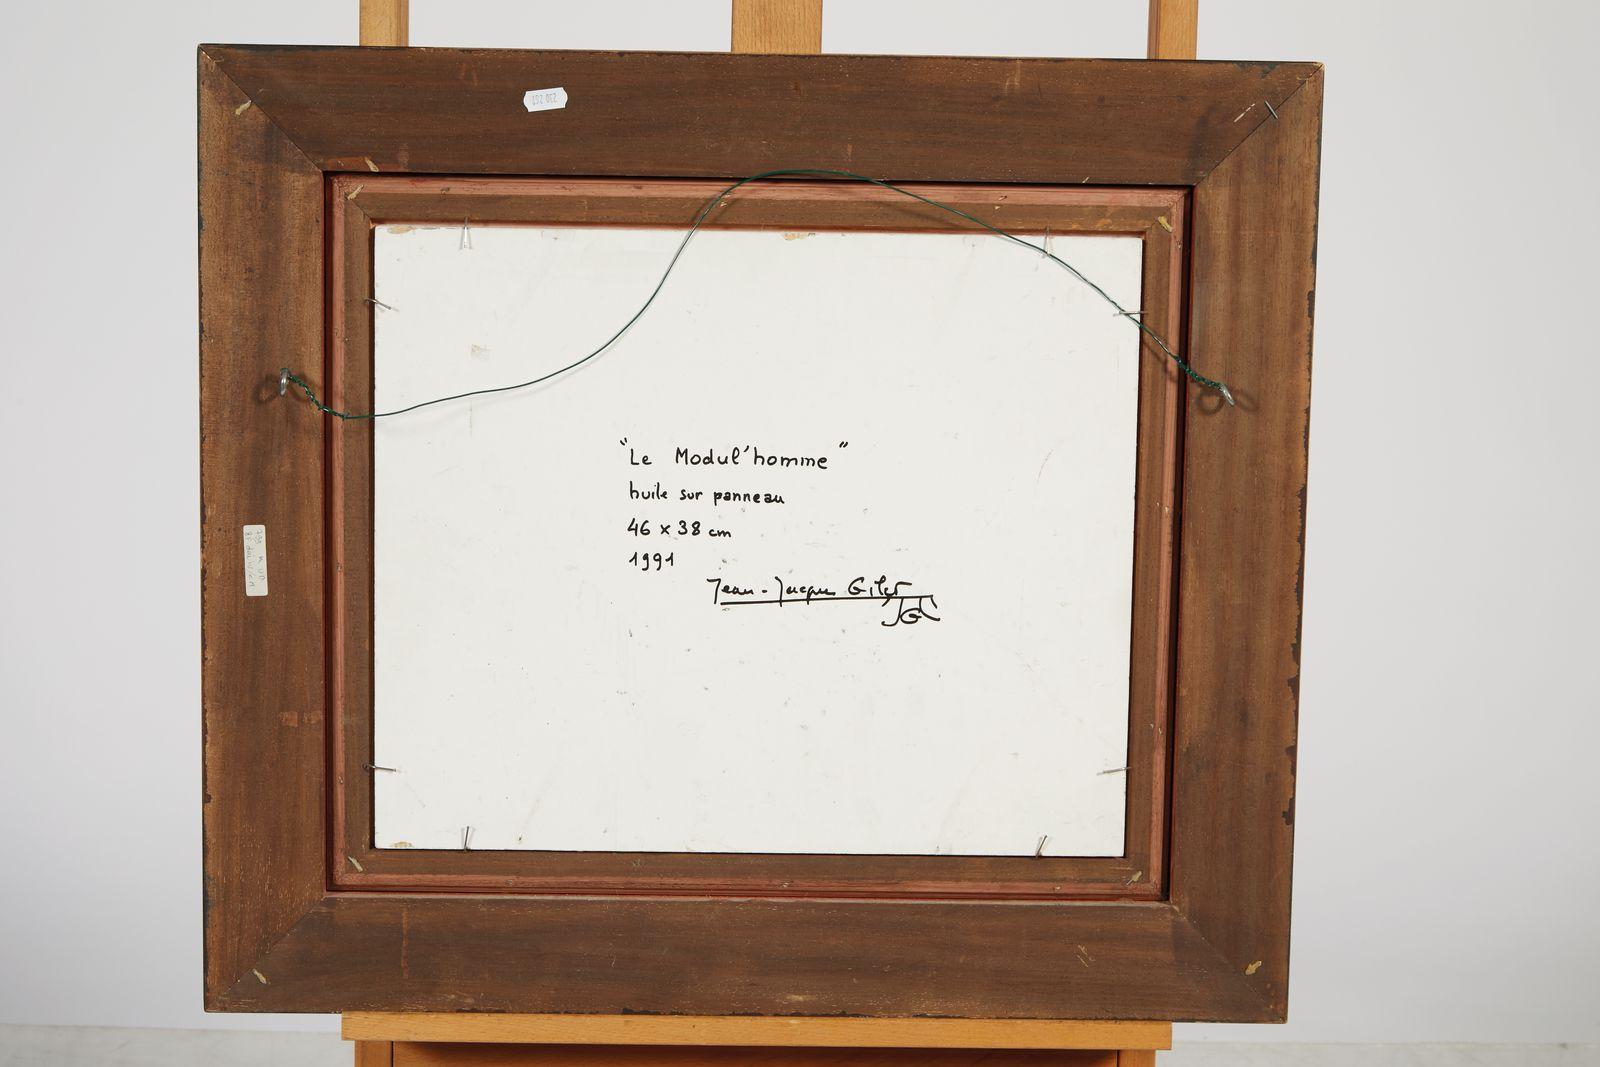 "Le Modul'homme"
huile sur panneau
46 x 38 cm
1991
Jean-Jacques Gilot
JG